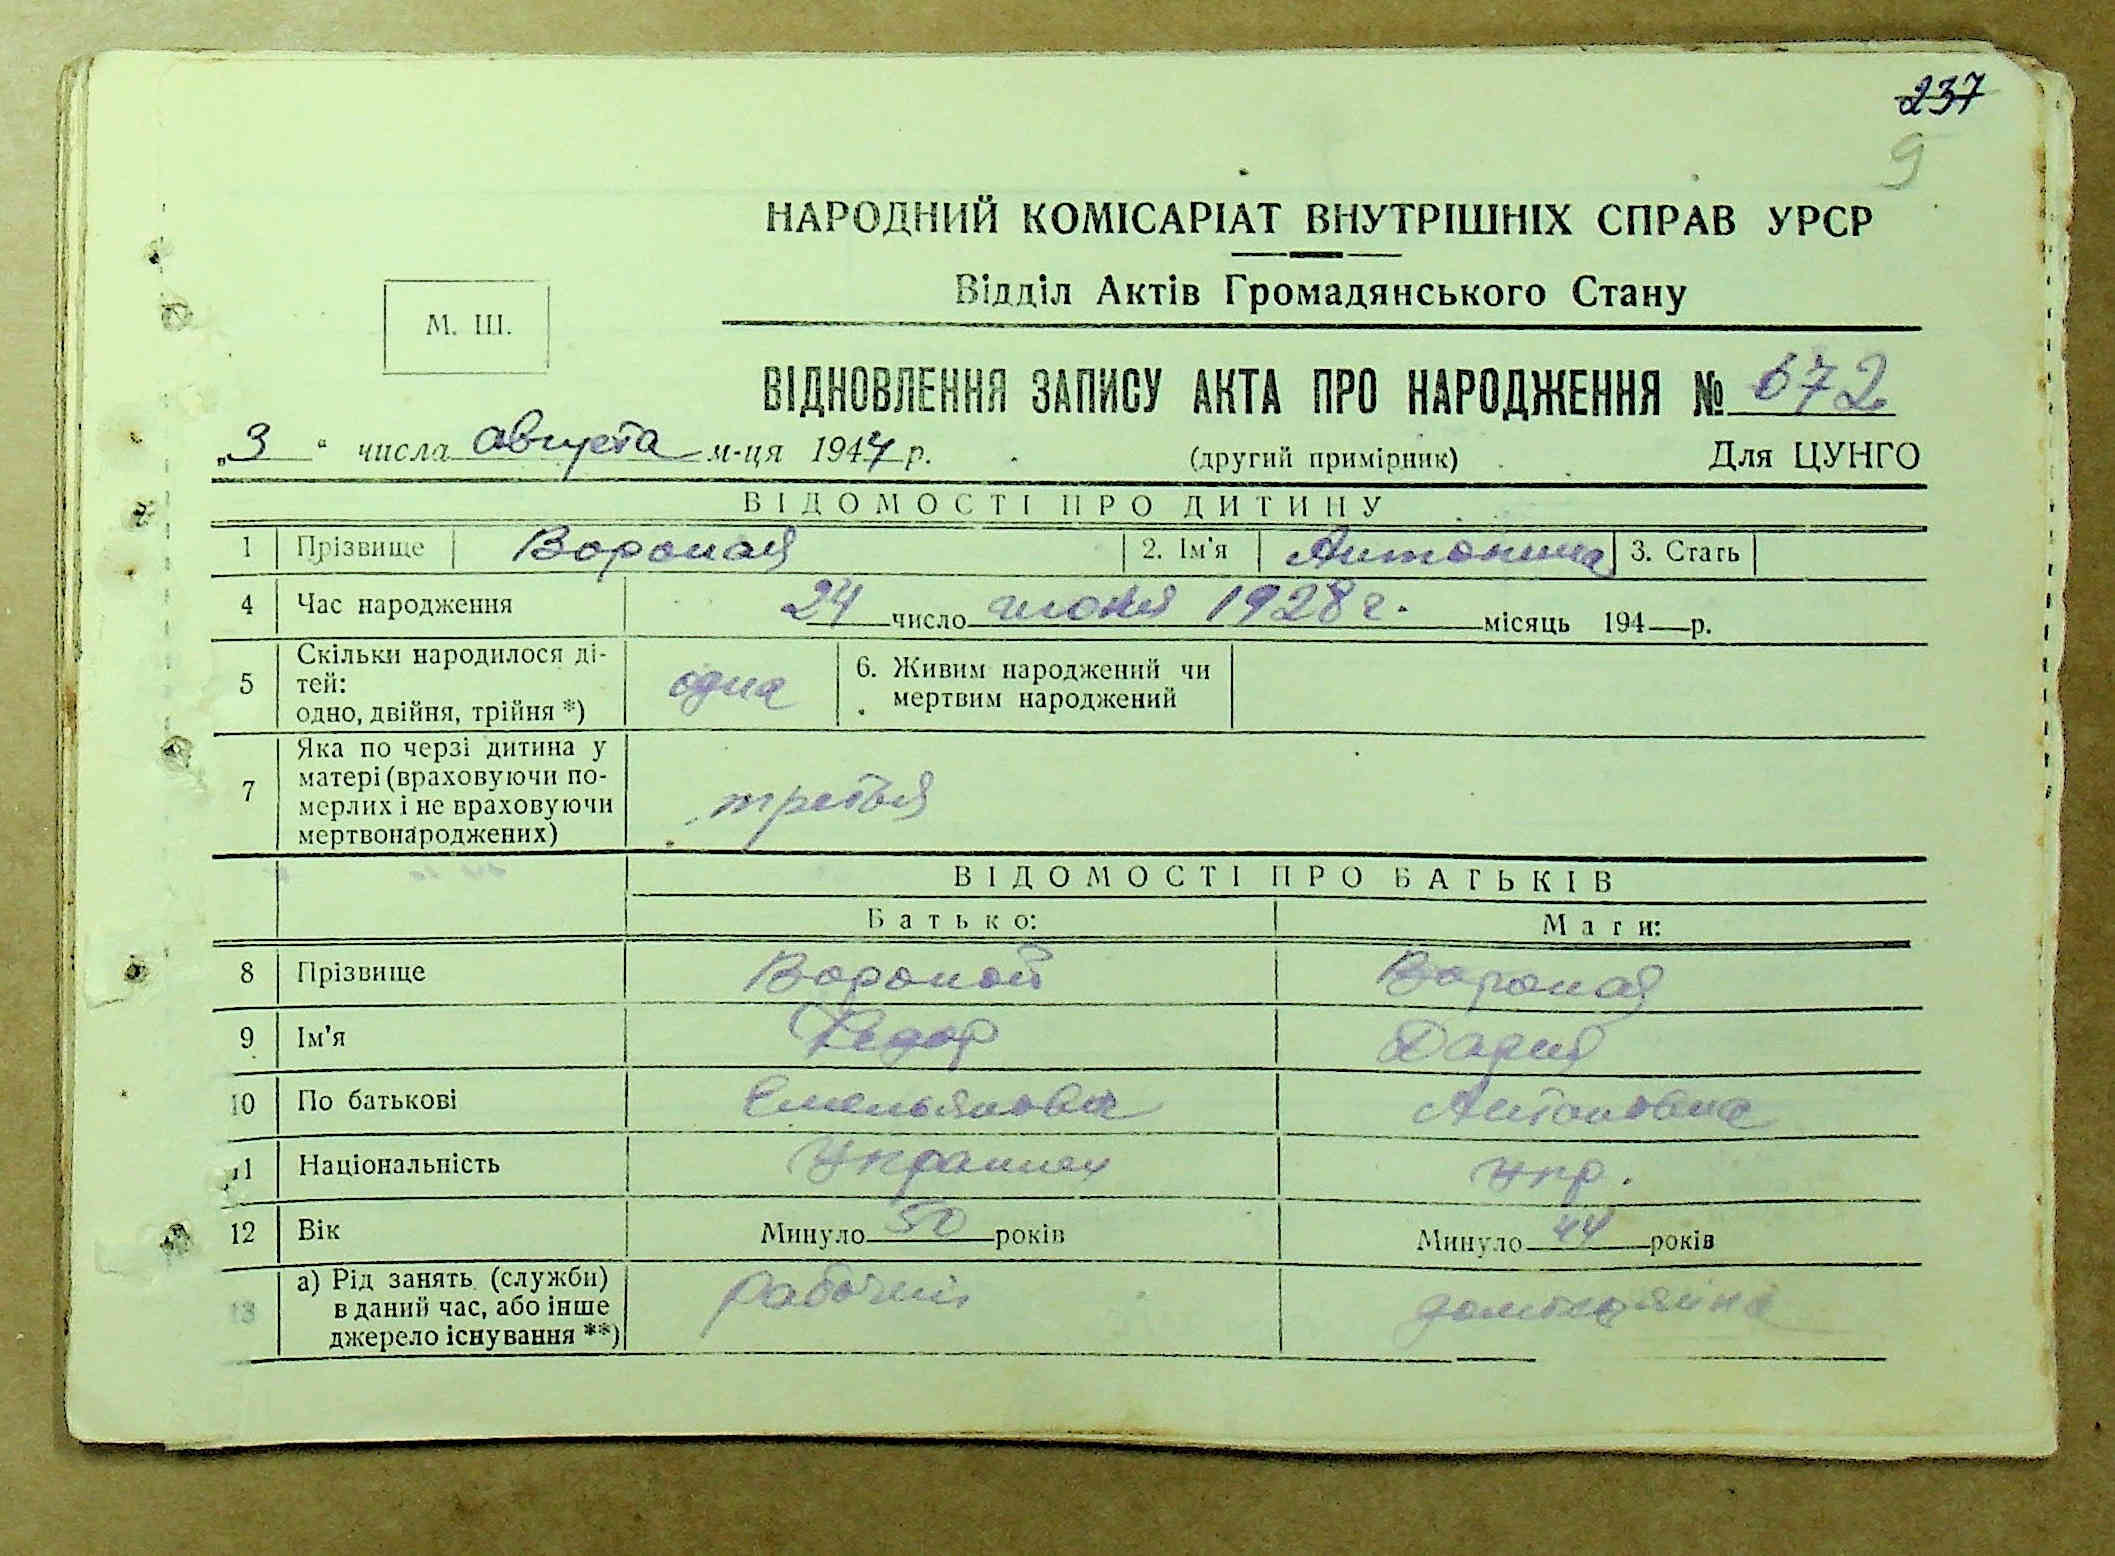 237
9
НАРОДНИЙ КОМІСАРІАТ ВНУТРІШНІХ СПРАВ УРСР
Відділ Актів Громадянського Стану
М. Ш.
ВІДНОВЛЕННЯ ЗАПИСУ АКТА ПРО НАРОДЖЕННЯ № 672
„3“ числа августа м-ця 1944 р. (другий примірник) Для ЦУНГО
ВІДОМОСТІ ПРО ДИТИНУ
1 Прізвище Вороная 2. Ім'я Антонина 3. Стать
4 Час народження 24 число июня 1928 г. місяць 194—р.
5 Скільки народилося ді-
тей:
одно, двійня, трійня *) одна 6. Живим народжений чи
мертвим народжений
7 Яка по черзі дитина у
матері (враховуючи по-
мерлих і не враховуючи
мертвонароджених) третья
ВІДОМОСТІ ПРО БАТЬКІВ
Батько: Мати:
8 Прізвище Вороной Вороная
9 Ім'я Федор Дария
10 По батькові Емельянович Антоновна
11 Національність Украинец Укр.
12 Вік Минуло 50 років Минуло 44 років
13 а) Рід занять (служби)
в даний час, або інше
джерело існування **) рабочий домохозяйка